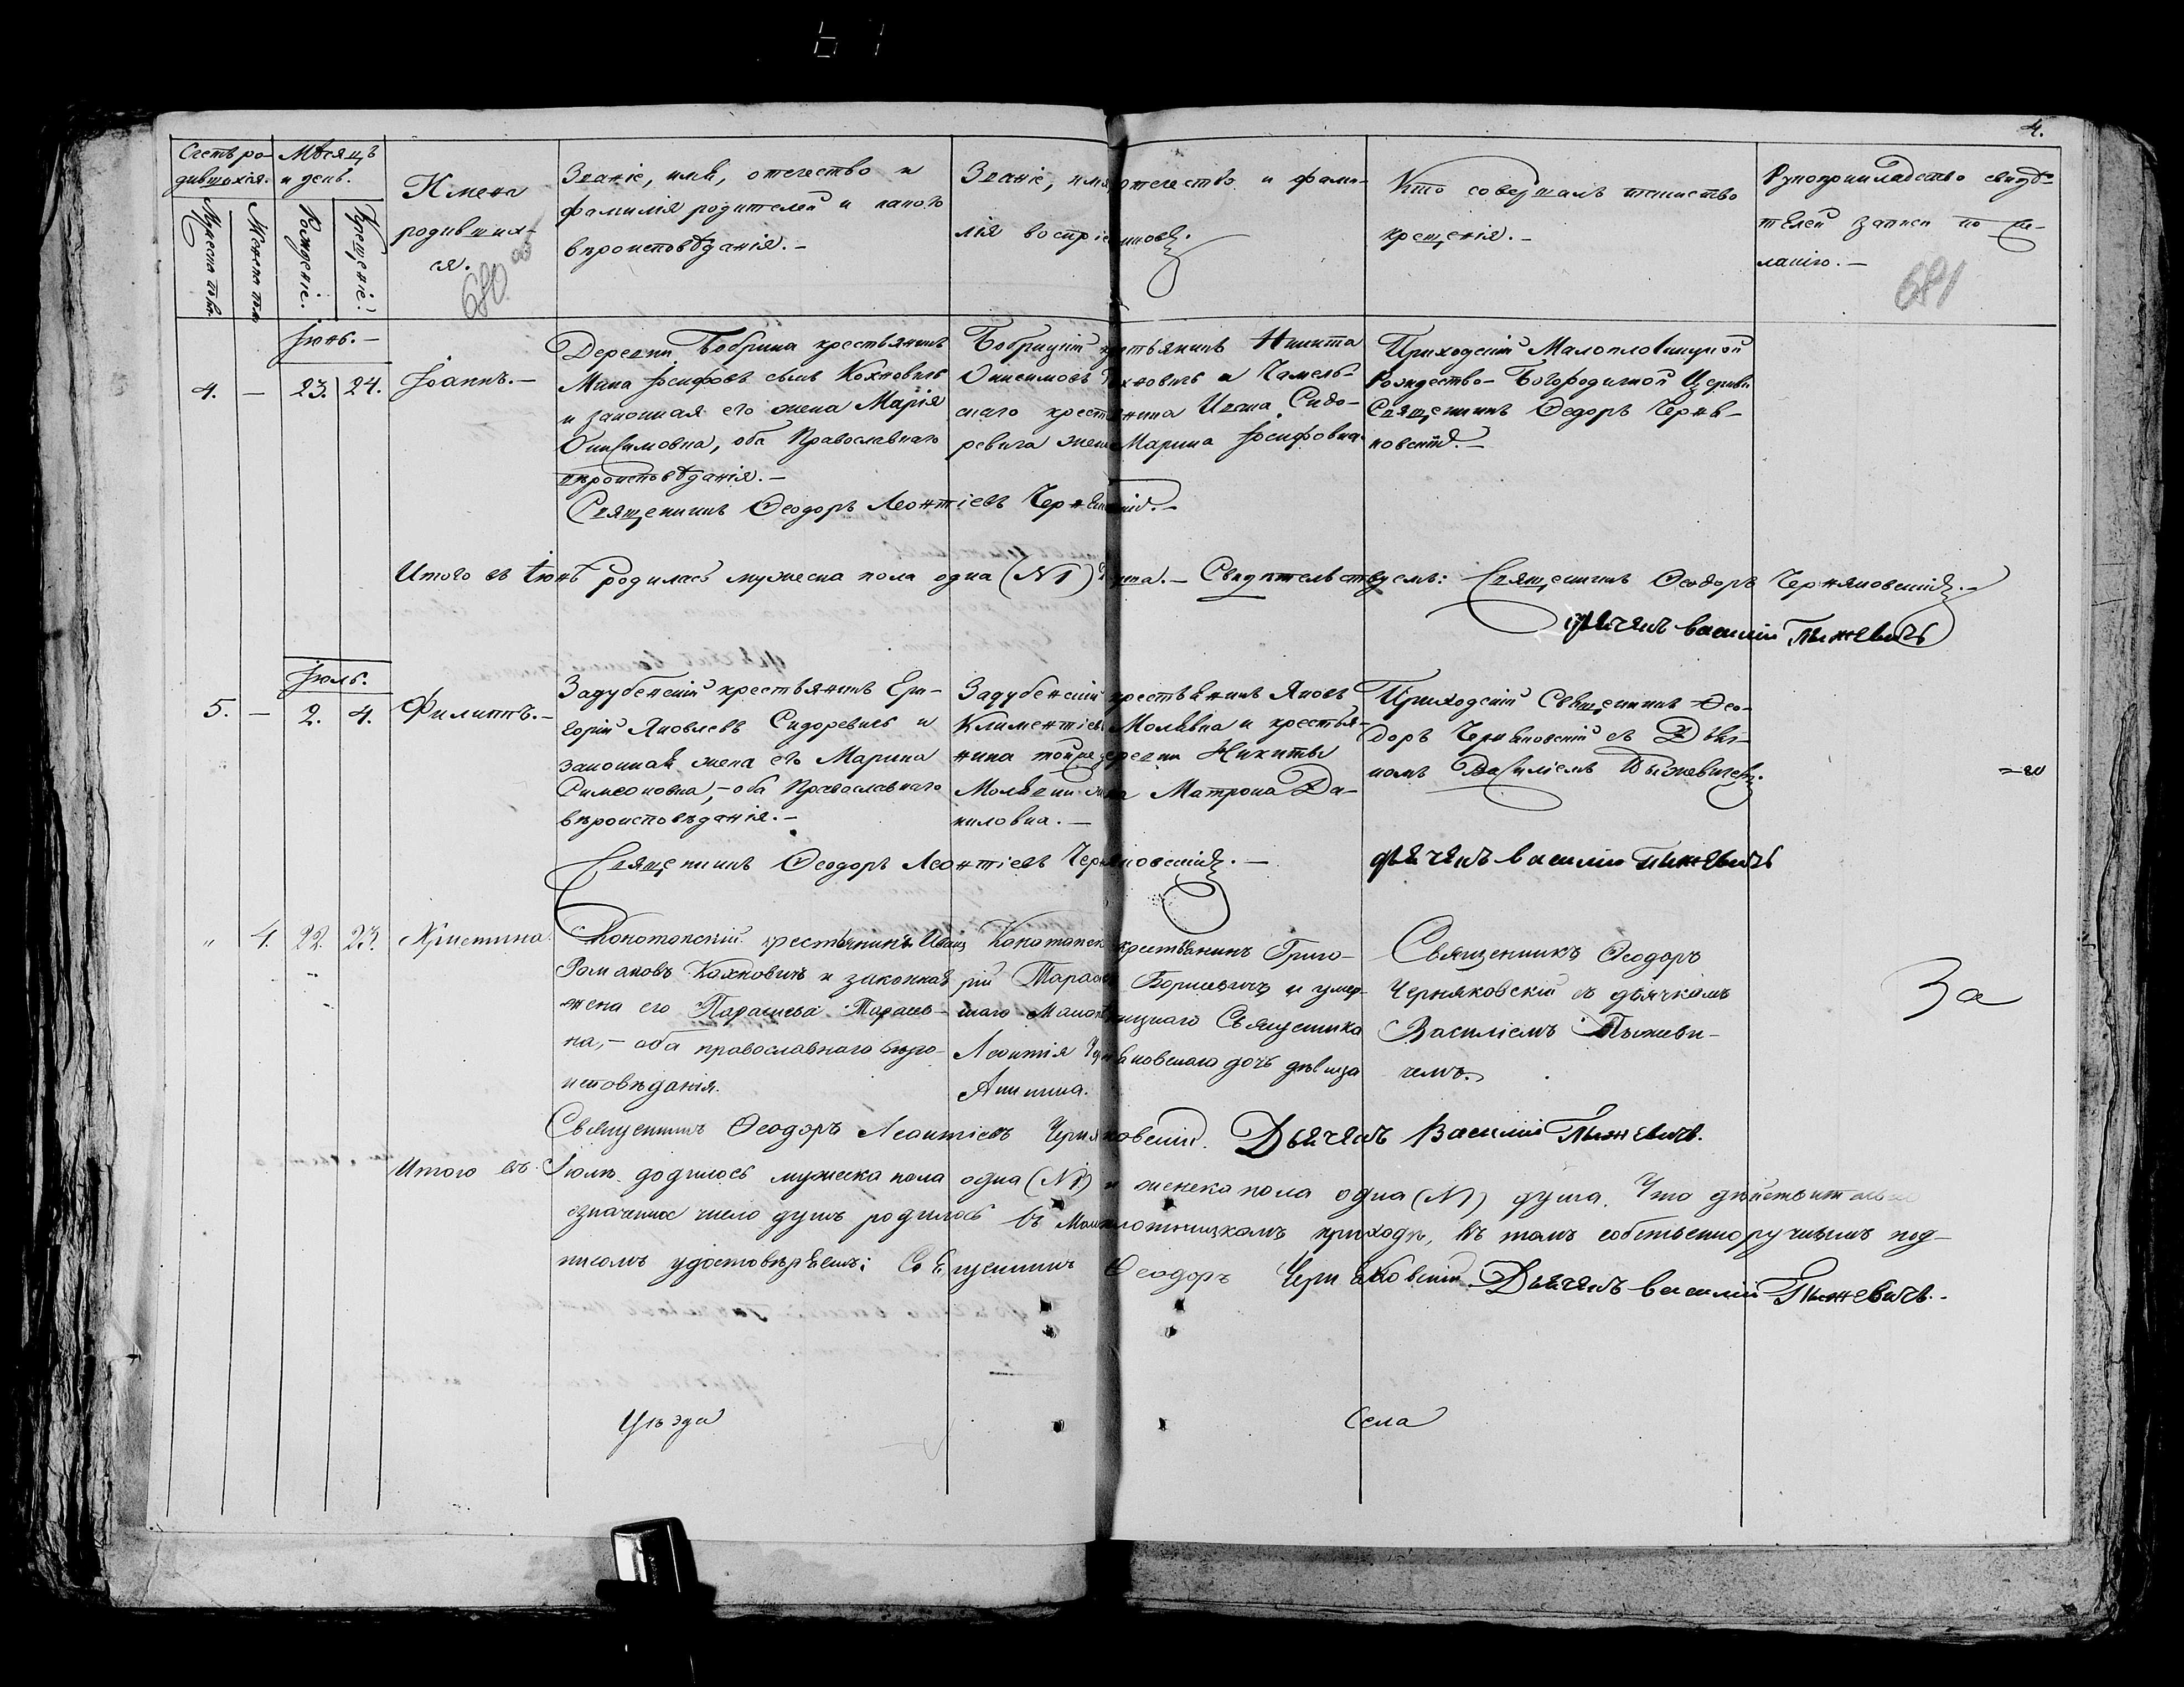 4.
Счетъ ро-
дившихся.
Мѣсяцъ
и день.
Мужеска пола.
Женска пола.
Рожденіе.
Крещеніе.
Имена
родивших-
ся.
680 об
Званіе, имя, отечество и
фамилія родителей и какого
вѣроисповѣданія.-
Званіе, имя, отечество и фами-
лія воспріемниковъ.
Кто совершалъ таинство
крещенія.-
Рукоприкладство свидѣ-
телей записи по же-
ланію.-
681
Іюнь.-
4.
-
23.
24.
Іоаннъ.-
Деревни Бобрика крестьянинъ
Іосифовъ сынъ Кохновичъ
и законная его жена Марія
Онисимовна, оба Православнаго
вѣроисповѣданія.-
Священникъ Ѳеодоръ Леонтіевъ
Бобрицкій крестьянинъ Никита
Онисимовъ Кохновичъ и
скаго крестьянина Ивана Сидо-
ревича жена Марина Іосифовна
Приходскій Малоплотницкой
Рождество-Богородичной Церкви
Священникъ Ѳеодоръ Черня-
ковскій.-
Итого въ Іюнѣ родилась мужеска пола одна (N1) душа.- Свидѣтельствуемъ: Священникъ Ѳеодоръ Черняковскій.-
дьячекъ василій Пыжевичъ
Іюль.
5.
-
2.
4.
Филиппъ.-
Задубенскій крестьянинъ Гри-
горій Яковлевъ Сидоревичъ и
законная жена его Марина
Симеоновна,-оба Православнаго
вѣроисповѣданія.-
Священникъ Ѳеодоръ Леонтіевъ Черняковскій.-
Задубенскій крестьянинъ Яковъ
Климентіевъ и крестья-
нина той же деревни Никиты
жена Матрона Да-
ниловна.-
Приходскій Священникъ Ѳео-
доръ Черняковскій съ Дьяч-
комъ Василіемъ Пыжевичемъ.
дьячекъ василій Пыжевичъ
"
4.
22.
23.
Христина.
Конотопскій крестьянинъ Иванъ
Романовъ Кохновичъ и законная
жена его Параскева Тарасов-
на,- оба православнаго вѣро-
исповѣданія.
Конотопскій крестьянинъ Григо-
рій Тарасовъ Борисевичъ и умер-
шаго Священника
Леонтія Черняковскаго дочь дѣвица
Священникъ Ѳеодоръ
Черняковскій съ дьячкомъ
Василіемъ Пыжеви-
чемъ.
За
Священникъ Ѳеодоръ Леонтіевъ Черняковскій. Дьячекъ Василій Пыжевичъ.
Итого въ Іюлѣ родилось мужеска пола одна (N1) и женска пола одна (N1) душа. Что дѣйствительно
означенное число душъ родилось въ Малоплотницкомъ приходѣ, въ томъ собственноручнымъ под-
писомъ удостовѣряемъ: Священникъ Ѳеодоръ Черняковскій Дьячекъ василій Пыжевичъ.
Уѣзда
Села